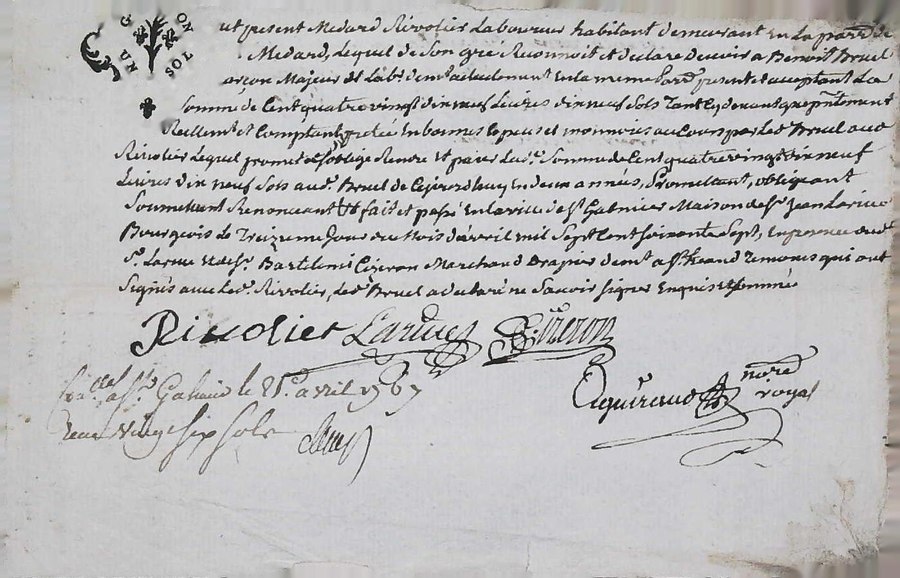 G ON
ND SOL
ut present Medard Rivolier Laboureur habitant demeurant en La parr.se de
Medard, Lequel de Son gré Reconnoit et declare devoir a Benoit Bruel
arçon Majeur et Lab.r dem.t actuelement En la meme parr.se present et acceptant La
Somme de Cent quatre vingt dix neuf Livres dix neuf Sols Tant Cy devant que pntement
Reellem.t et Comptant pretée En bonnes Especes et monnoies au Cours par Led. Bruel aud.
Rivolier Lequel promet et S'oblige Rendre Et paier Lad.e Somme de Cent quatre vingt dix neuf
Livres dix neuf Sols aud. Bruel de Cejourdhuy En deux années, Promettant, obligeant
Soumettant Renonceant &a fait et passé En la ville de S.t Galmier Maison de S.r Jean Larue
Bourgeois Le Treizieme Jour du Mois d'avril mil Sept Cent Soixante Sept, En presence dud.
S.r Larue et de S.r Bartelemi Ciseron Marchand Drapier dem.t a S.t heand Temoins qui ont
Signés avec Led. Rivolier, Led. Bruel a declaré ne Savoir signer Enquis et sommé
Rivolier Larue Ciseron
Con.lle a S.t Galmier le 21.e avril 1767
Receu vingt six sols
not.re
royal